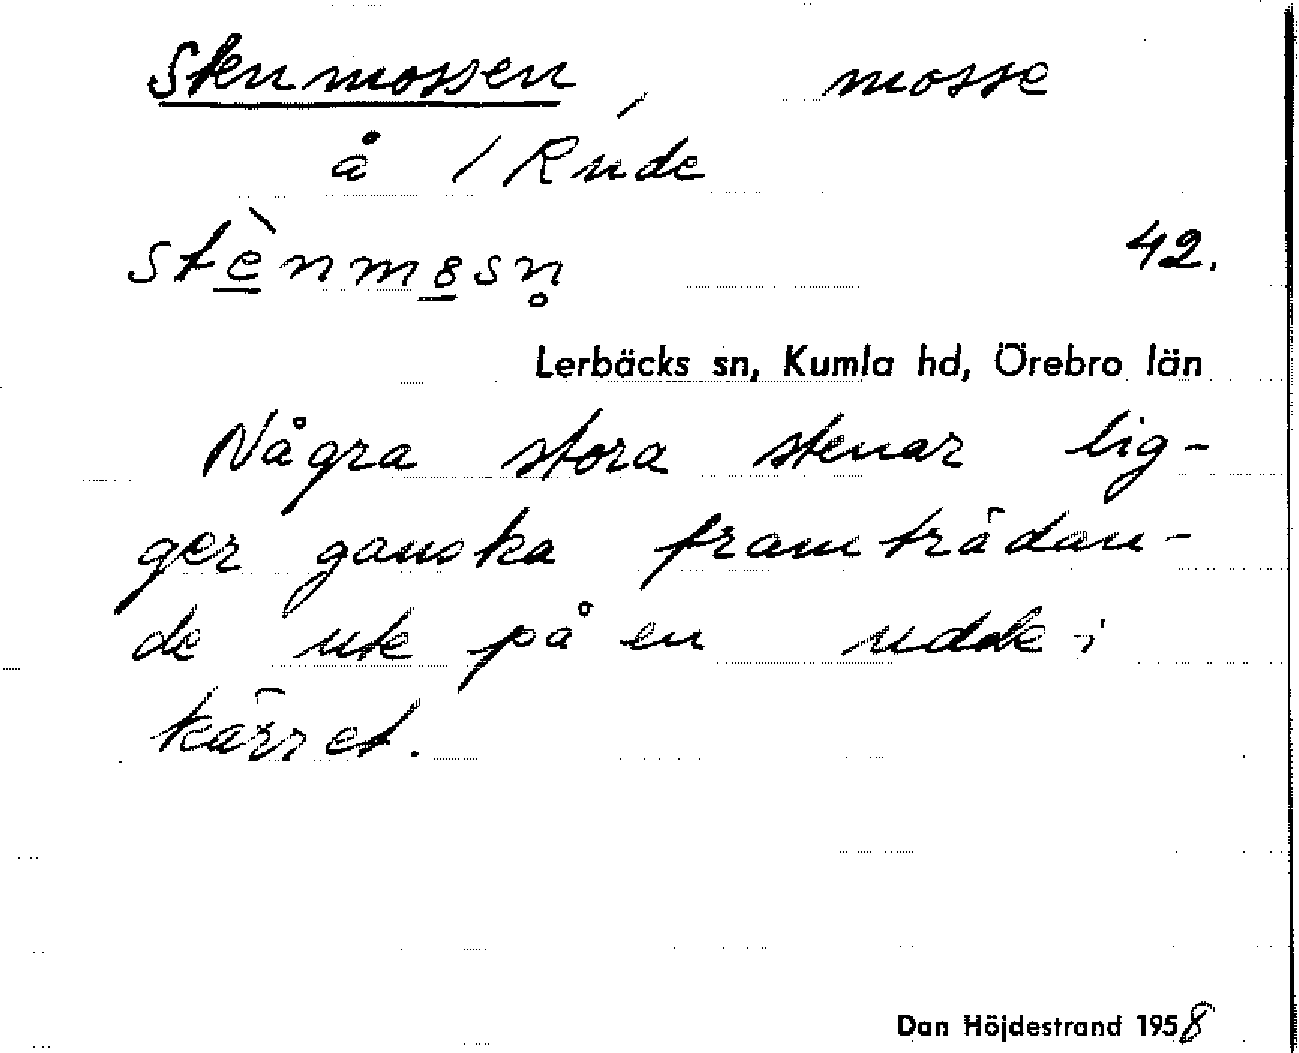 Stenmossen, mosse
å / Rude
stènmɵsn̥ 42.
Lerbäcks sn, Kumla hd, Örebro län
Några stora stenar lig-
ger ganska framträdan-
de ute på en udde i
kärret.
Dan Höjdestrand 1958